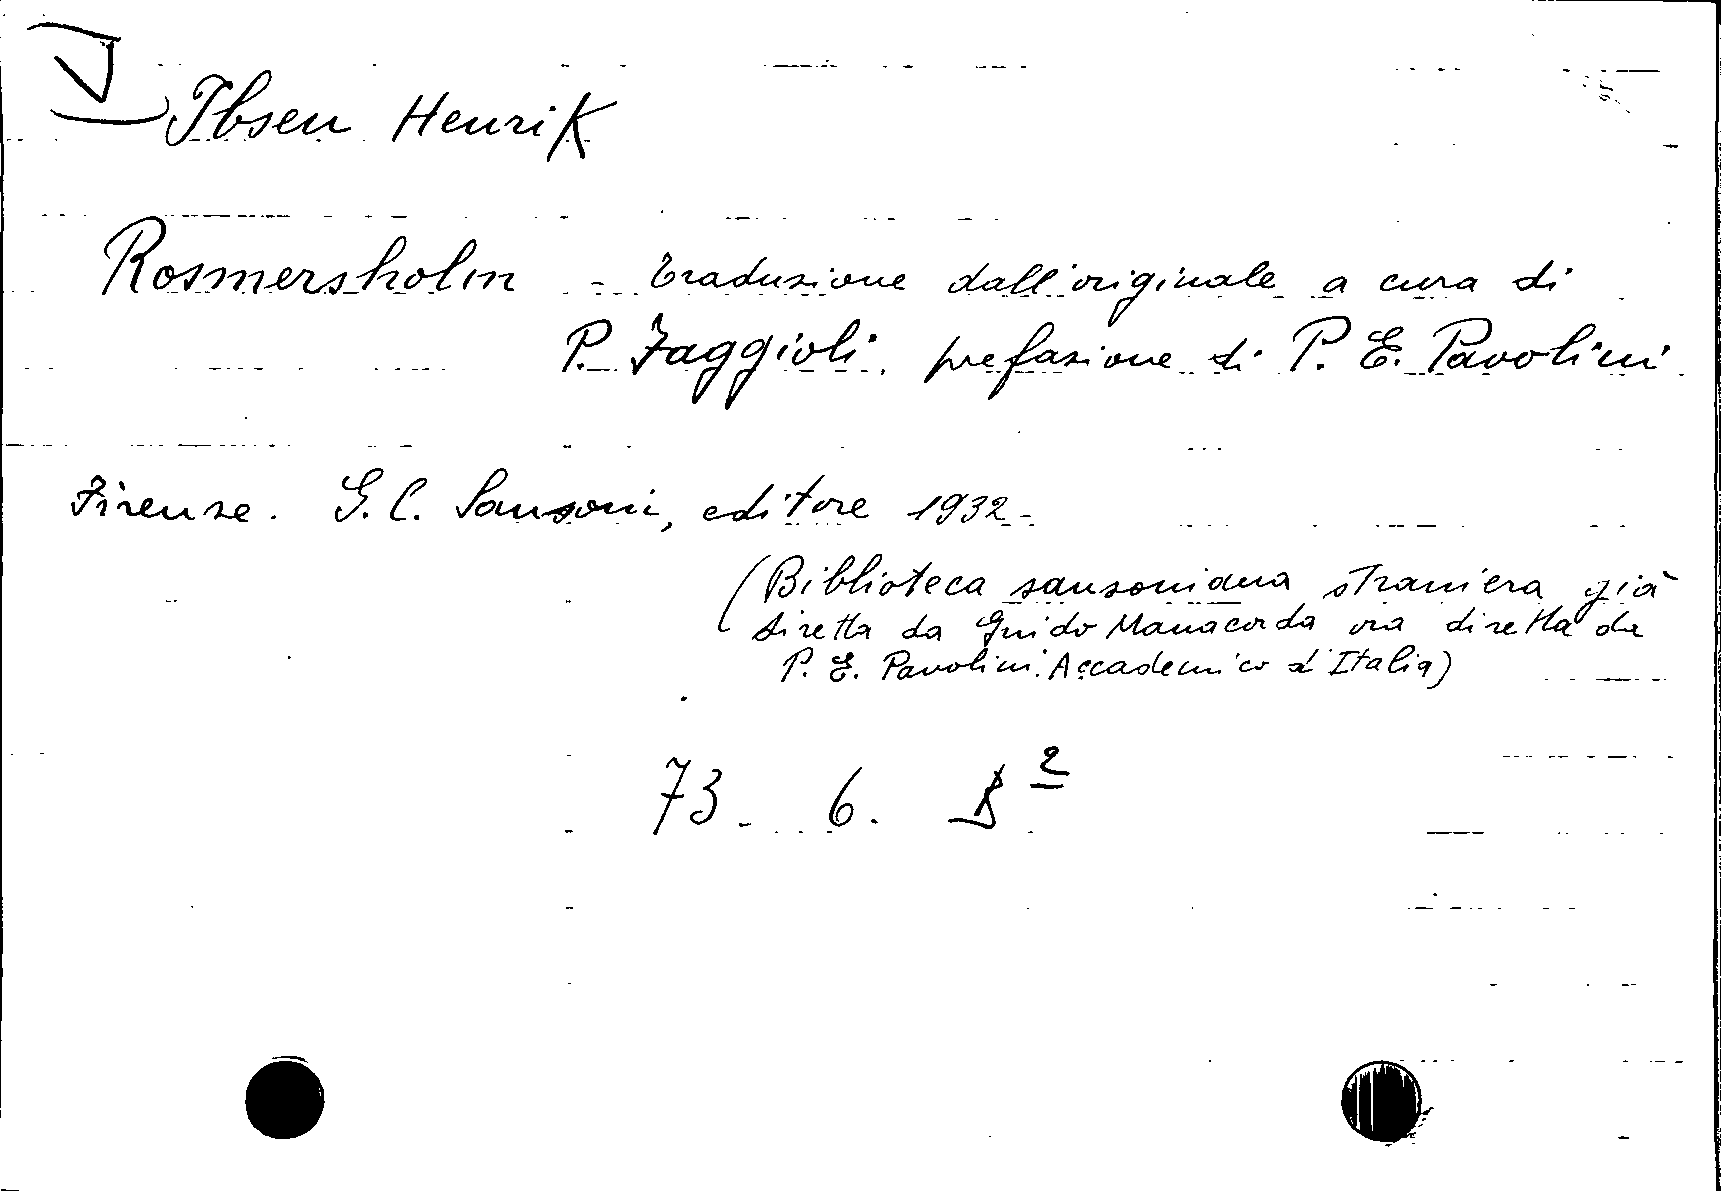 Ibsen Henrik
Rosmersholm - traduzione dall'originale a cura di
P. Faggioli. prefazione di P. E. Pavolini
Firenze. G. C. Sansoni, editore 1932-
(Biblioteca sansoniana straniera già
diretta da Guido Manacorda ora diretta da
P. E. Pavolini. Accademico d'Italia)
73 - 6.